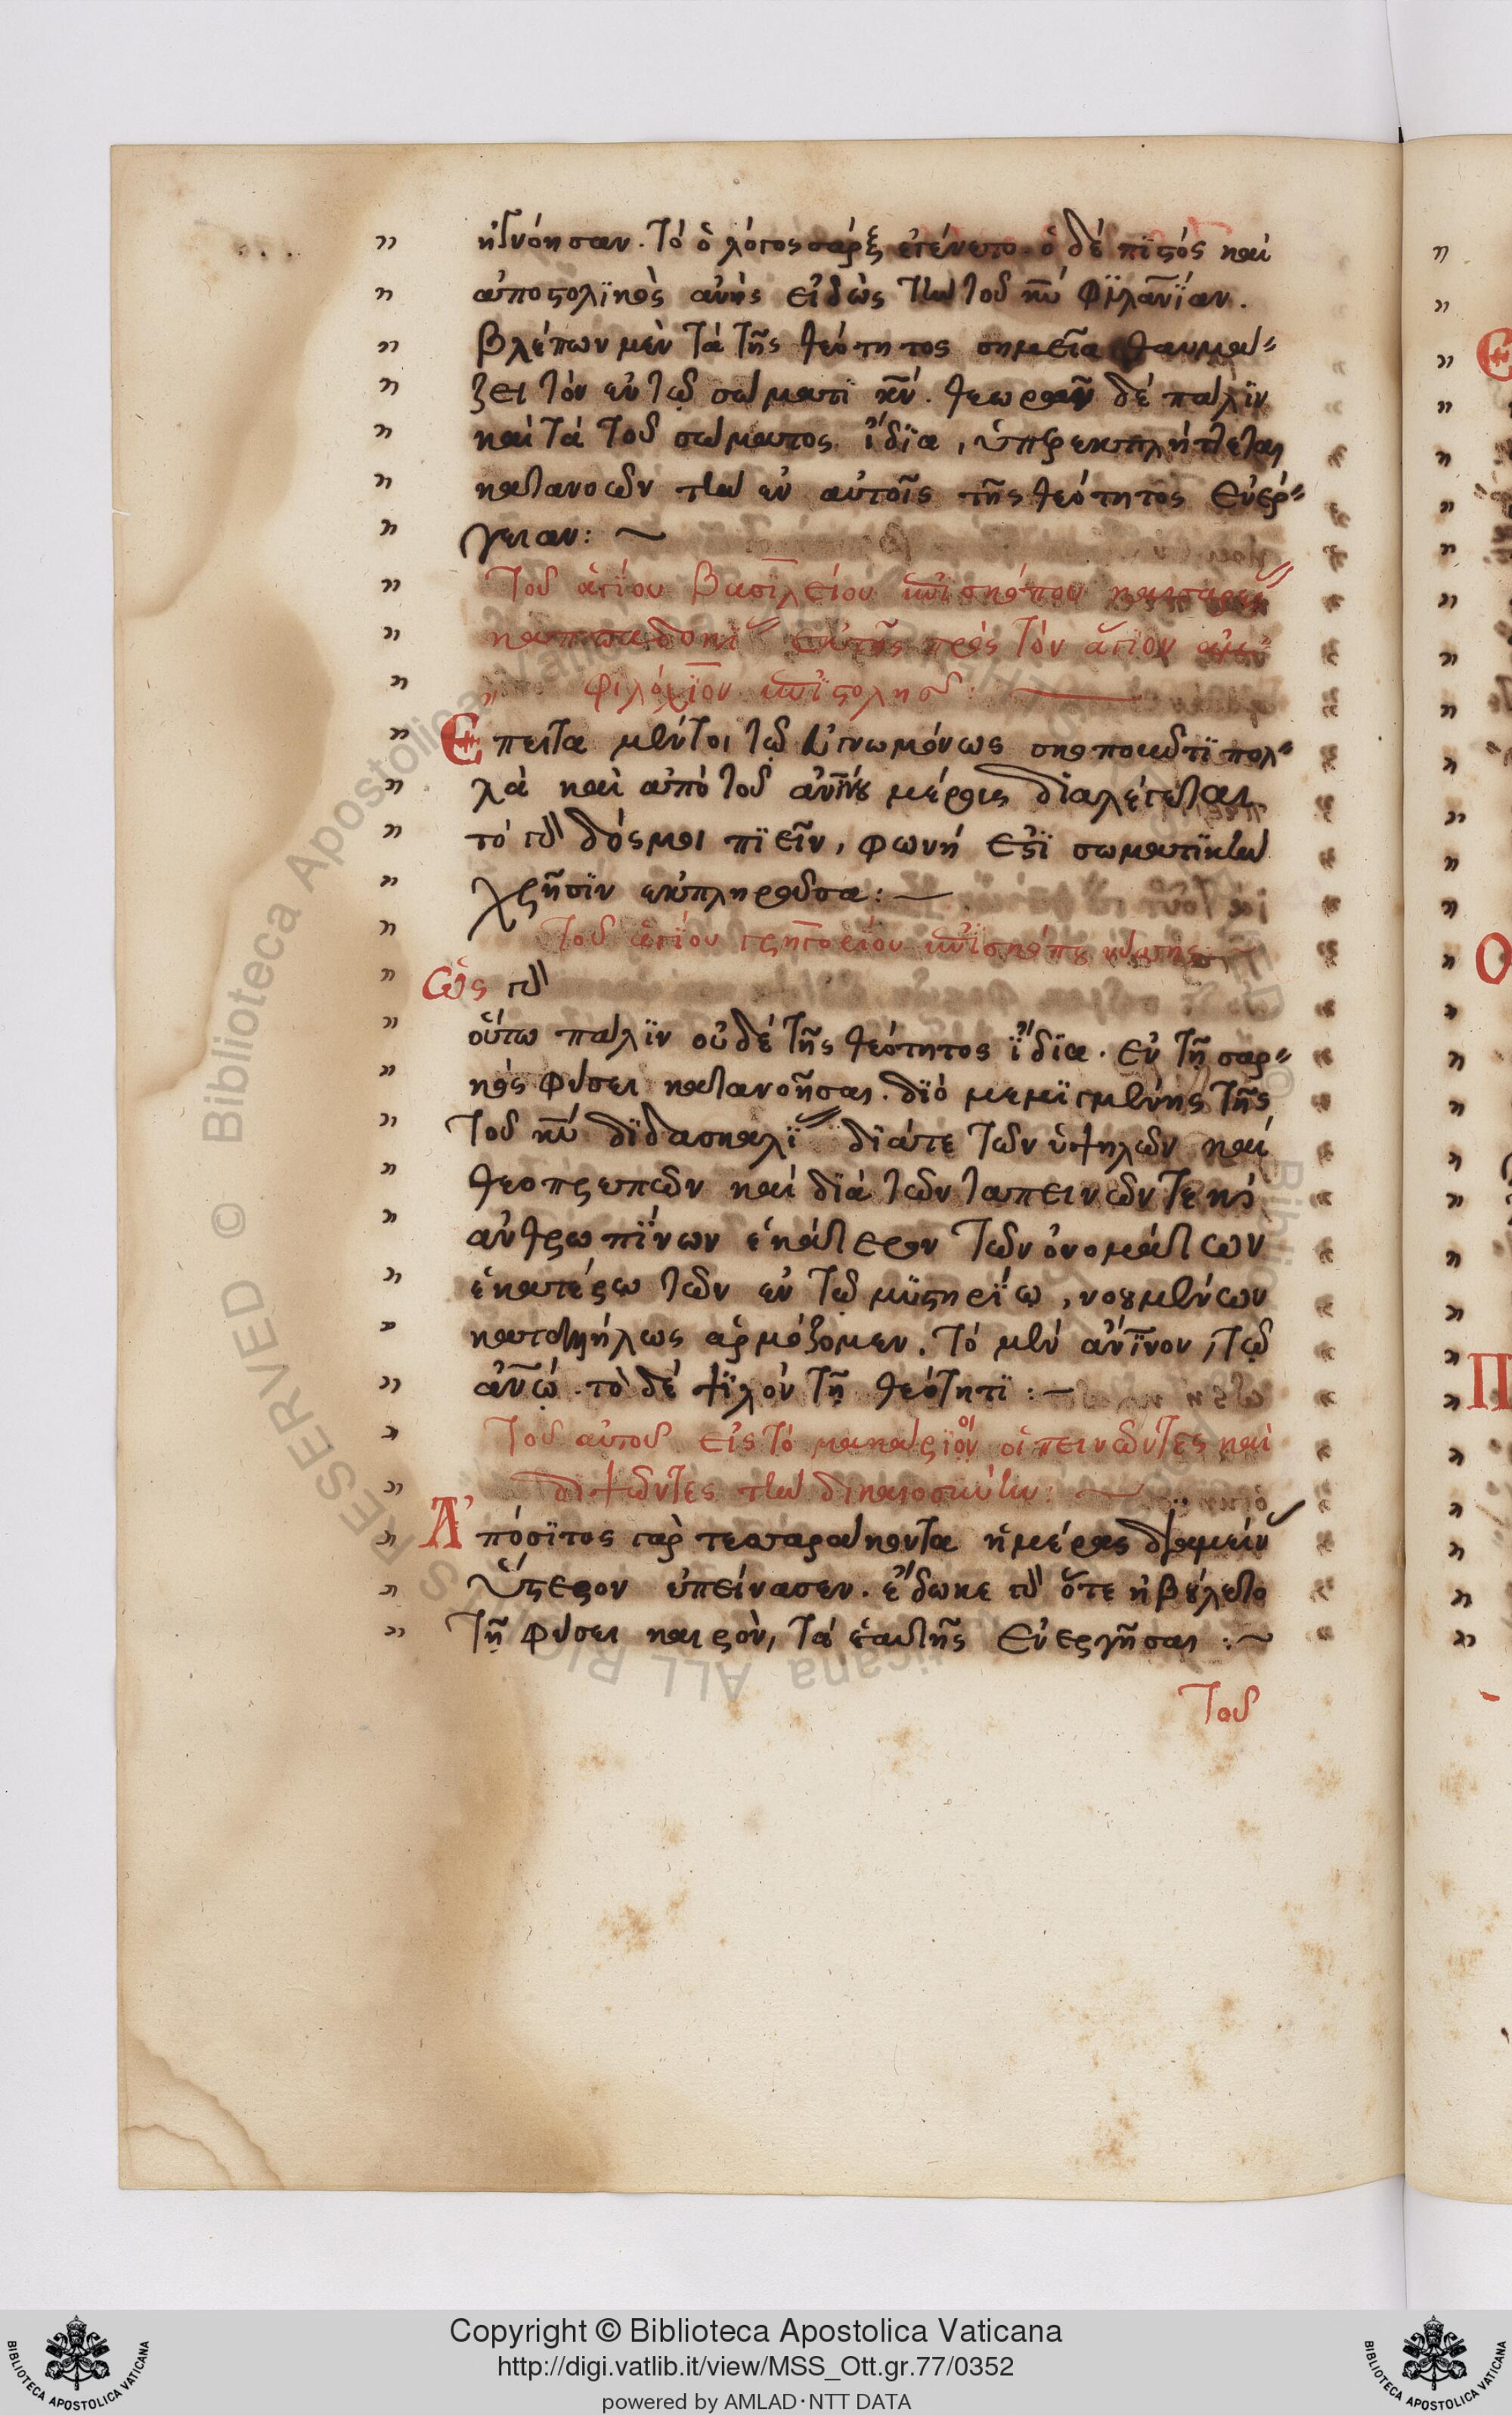 ηὐνόησαν. τὸ ὁ λόγος σάρξ ἐγένετο. ὁ δὲ πϊστός καὶ
ἀποστολϊκὸς ἀνὴρ εἰδὼς τὴν τοῦ κ̅υ̅ φϊλαν̅ΐαν.
βλέπων μὲν τὰ τῆς θεότητος σημεῖα θαυμά
ζει τὸν ἐν τῷ σώματϊ κ̅ν̅. θεωρῶν δὲ πάλϊν
καὶ τὰ τοῦ σώματος ἴδϊα, ὑπερεκπλήττεται
κατανοῶν τὴν ἐν αὐτοῖς τῆς θεότητος ἐνέρ
γειαν: ~
Τοῦ ἁγΐου Βασϊλείου ἐπϊσκόπου καισαρεί
καππαδοκΐ ἐκ τῆς πρὸς τὸν ἅγϊον ἀμ
φιλόχϊον ἐπϊστολῆς:
Ἔπειτα μέντοι τῷ σκοποῦντϊ πολ
λὰ καὶ ἀπὸ τοῦ ἀν̅ίνου μέρους διαλέγεται
τό γὰρ δός μοι πϊεῖν, φωνή ἐστϊ σωματϊκὴν
χρῆσϊν ἐκπληροῦσα: ~
Τοῦ ἁγΐου γρηγορίου ἐπϊσκόπου νύσης
Ὡς γὰρ
οὕτω πάλϊν οὐδὲ τῆς θεότητος ἴδϊα. ἐν τῇ σαρ
κὸς φύσει κατανοῆσαι. δϊό μεμϊγμένης τῆς
τοῦ κ̅υ̅ δϊδασκαλΐ δϊά τε τῶν ὑψηλῶν καὶ
θεοπρεπῶν καὶ δϊὰ τῶν ταπεινῶν τε καὶ
ἀνθρωπΐνων ἑκάτερον τῶν ὀνομάτων
ἑκατέρω τῶν ἐν τῷ μϋστηρΐῳ, νοουμένων
καταλλήλως ἁρμόζομεν. τό μὲν ἀν̅ϊνον, τῷ
ἀν̅ῳ. τὸ δὲ ψϊλόν τῇ θεότητϊ: ~
Τοῦ αὐτοῦ εἰς τὸ μακάρϊοι οἱ πεινῶντες καὶ
διψῶντες τὴν δικαιοσύνην: ~
Ἀπόσϊτος γὰρ τεσσαράκοντα ἡμέρας δϊαμείν
ὕστερον ἐπείνασεν. ἔδωκε γὰρ ὅτε ἠβούλετο
τῇ φύσει καιρὸν, τὰ ἑαυτῆς ἐνεργῆσαι: ~
Τοῦ
Copyright © Biblioteca Apostolica Vaticana
http://digi.vatlib.it/view/MSS_Ott.gr.77/0352
powered by AMLAD·NTT DATA
BIBLIOTECA APOSTOLICA VATICANA
BIBLIOTECA APOSTOLICA VATICANA